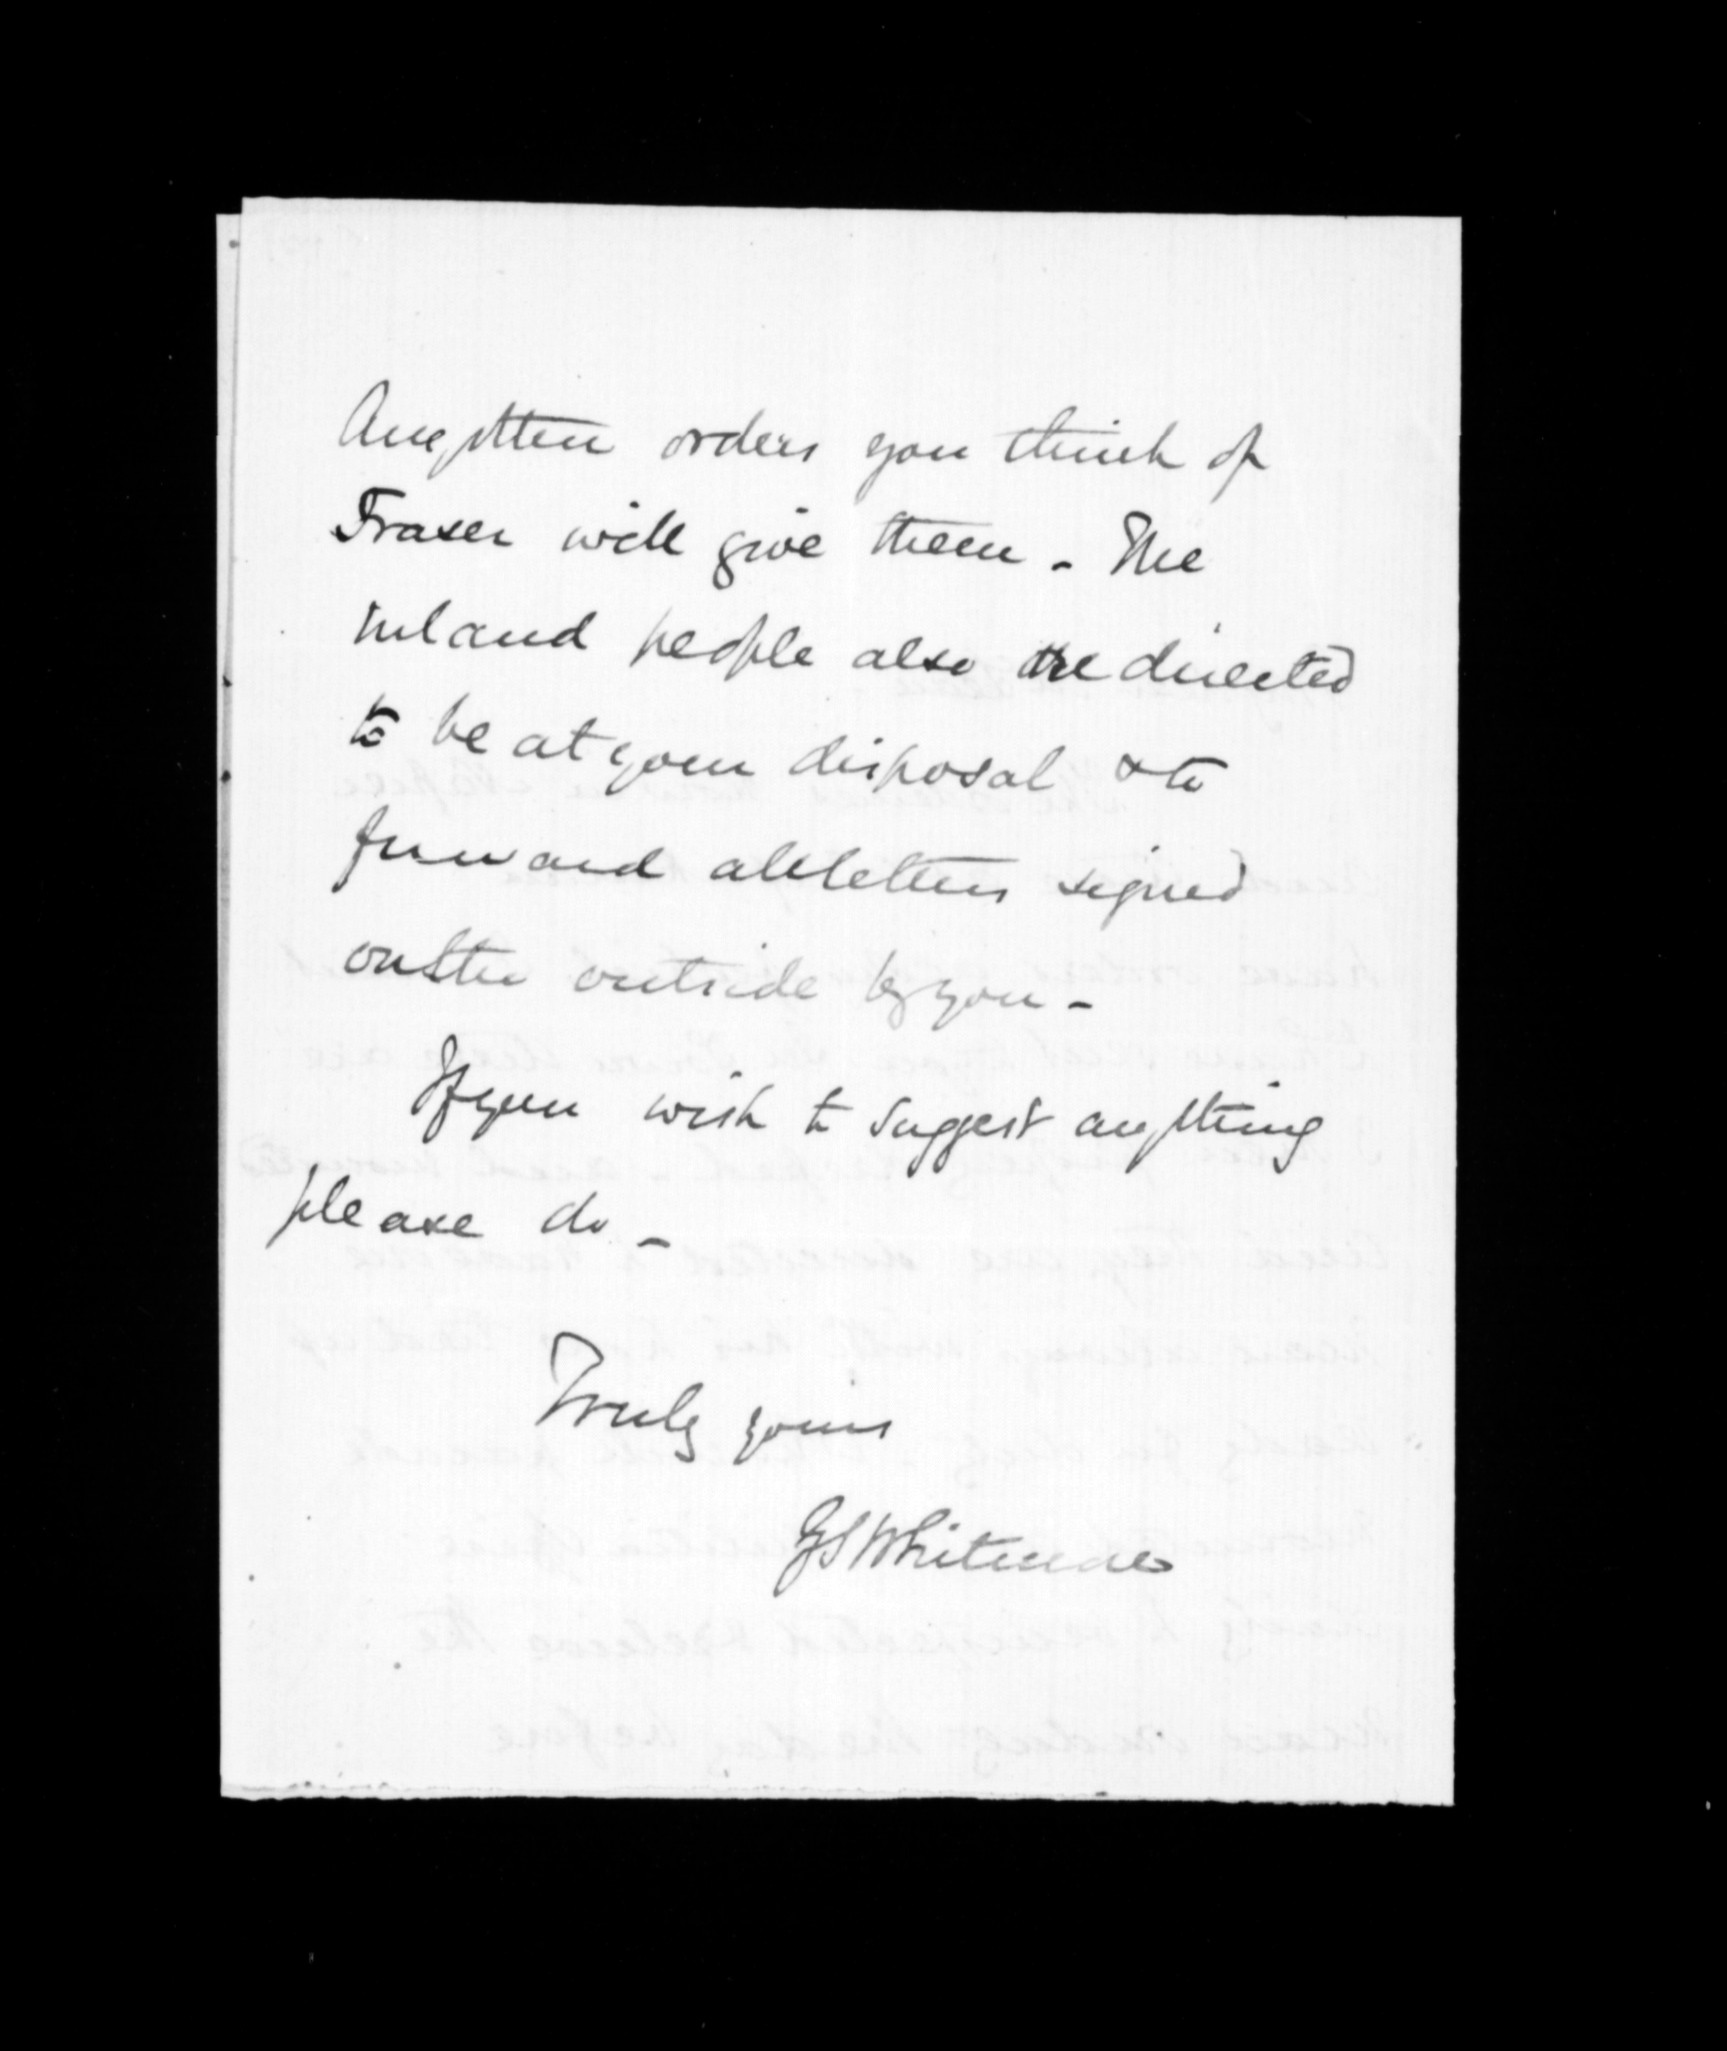 Any other orders you think of
Fraser will give them - The
inland people also are directed
to be at your disposal & to
forward all letters signed
on the outside by you -
If you wish to suggest anything
please do -
Truly yours
GS Whitmore